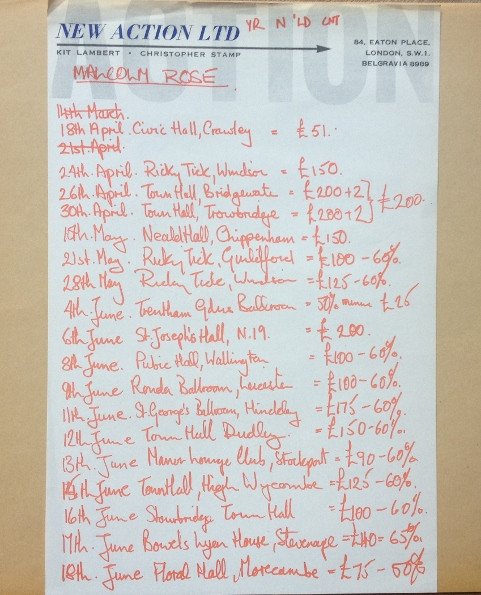 NEW ACTION LTD
YR N 'LD CNT
KIT LAMBERT • CHRISTOPHER STAMP
84, EATON PLACE,
LONDON, S.W.I.
BELGRAVIA 8989
ACTION
MALCOLM ROSE
14th March.
18th April. Civic Hall, Crawley = £51.
21st April.
24th. April. Ricky Tick, Windsor = £150.
26th. April. Town Hall, Bridgewater = £200÷2 } £200.
30th April. Town Hall, Trowbridge = £200÷2
May. Neald Hall, Chippenham = £150.
21st. May. Ricky Tick, Guildford = £100 - 60%.
28th May Ricky Tick, Windsor = £125 - 60%.
4th. June. Trentham Gdns Ballroom = 50% minus £25
6th June St. Joseph's Hall, N.19. = £200.
8th June. Public Hall, Wallington = £100 - 60%.
9th June Ronda Ballroom, Leicester = £100 - 60%.
11th June. St. George's Ballroom, Hinckley = £175 - 60%.
12th June Town Hall Dudley. = £150 - 60%.
13th. June Manor Lounge Club, Stockport = £90 - 60%
15th June Town Hall, High Wycombe = £125 - 60%.
16th June Stourbridge Town Hall = £100 - 60%.
17th. June Bowes Lyon House, Stevenage = £140 = 65%.
18th. June Floral Hall, Morecambe = £75 - 60%